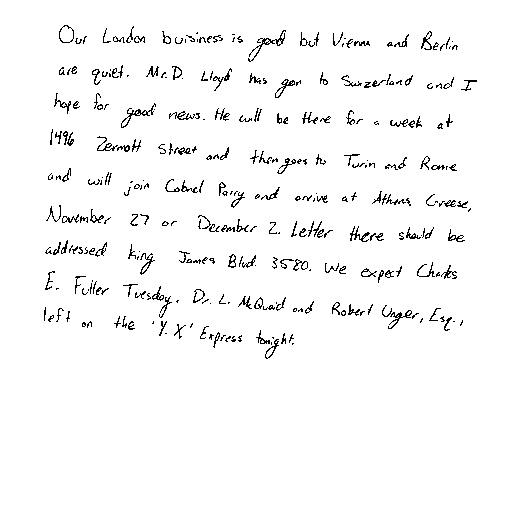 Our London buisiness is good but Vienna and Berlin
are quiet. Mr. D. Lloyd has gon to Swizerland and I
hope for good news. He will be there for a week at
1496 Zermott Street and then goes to Turin and Rome
and will join Colonel Parry and arrive at Athens Greese,
November 27 or December 2. Letter there should be
addressed king James Blvd 3580. We expect Charles
E. Fuller Tuesday. Dr. L. McQuaid and Robert Unger, Esq.,
left on the 'Y.X' Express tonight.